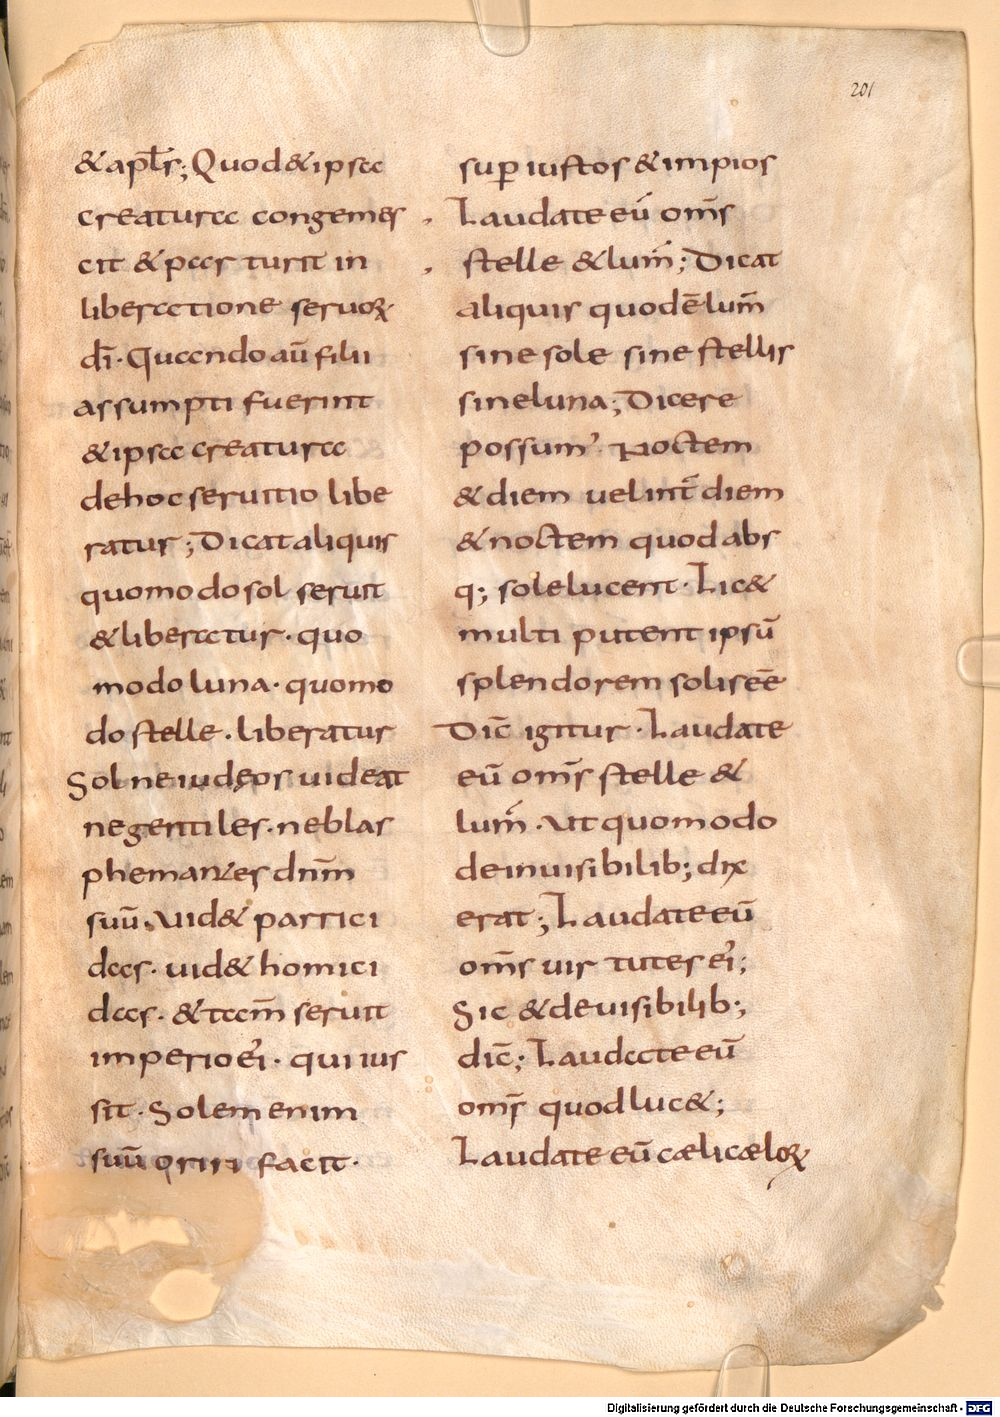 201
& apl̅s; Quod & ipsa
creatura congemes
cit & parturit in
liberatione seruoꝝ
dī. Quando aū filii
assumpti fuerint
& ipsa creatura
de hoc seruitio libe
ratur; Dicat aliquis
quomodo sol seruit
& liberatur. quo
modo luna. quomo
do stelle. liberatur
Sol ne iudęos uideat
ne gentiles. ne blas
phemantes dnm̄
suū. Uid& parrici
das. uid& homici
das. & tam̄ seruit
imperio eī. qui ius
sit. Solem enim
suū oriri facit.
suꝑ iustos & impios
Laudate eū om̄s
stelle & lum̄; Dicat
aliquis quod ē lum̄
sine sole sine stellis
sine luna; Dicere
possum' Noctem
& diem uel int̄ diem
& noctem quod abs
q; sole lucent. Lic&
multi putent ipsū
splendorem solis eē
Dic̄ igitur. Laudate
eū om̄s stelle &
lum̄. Ut quomodo
de inuisibilib; dix
erat; Laudate eū
om̄s uirtutes eī;
Sic & de uisibilib;
dic̄; Laudate eū
om̄s quod luc&;
Laudate eū cæli cæloꝝ
Digitalisierung gefördert durch die Deutsche Forschungsgemeinschaft - DFG